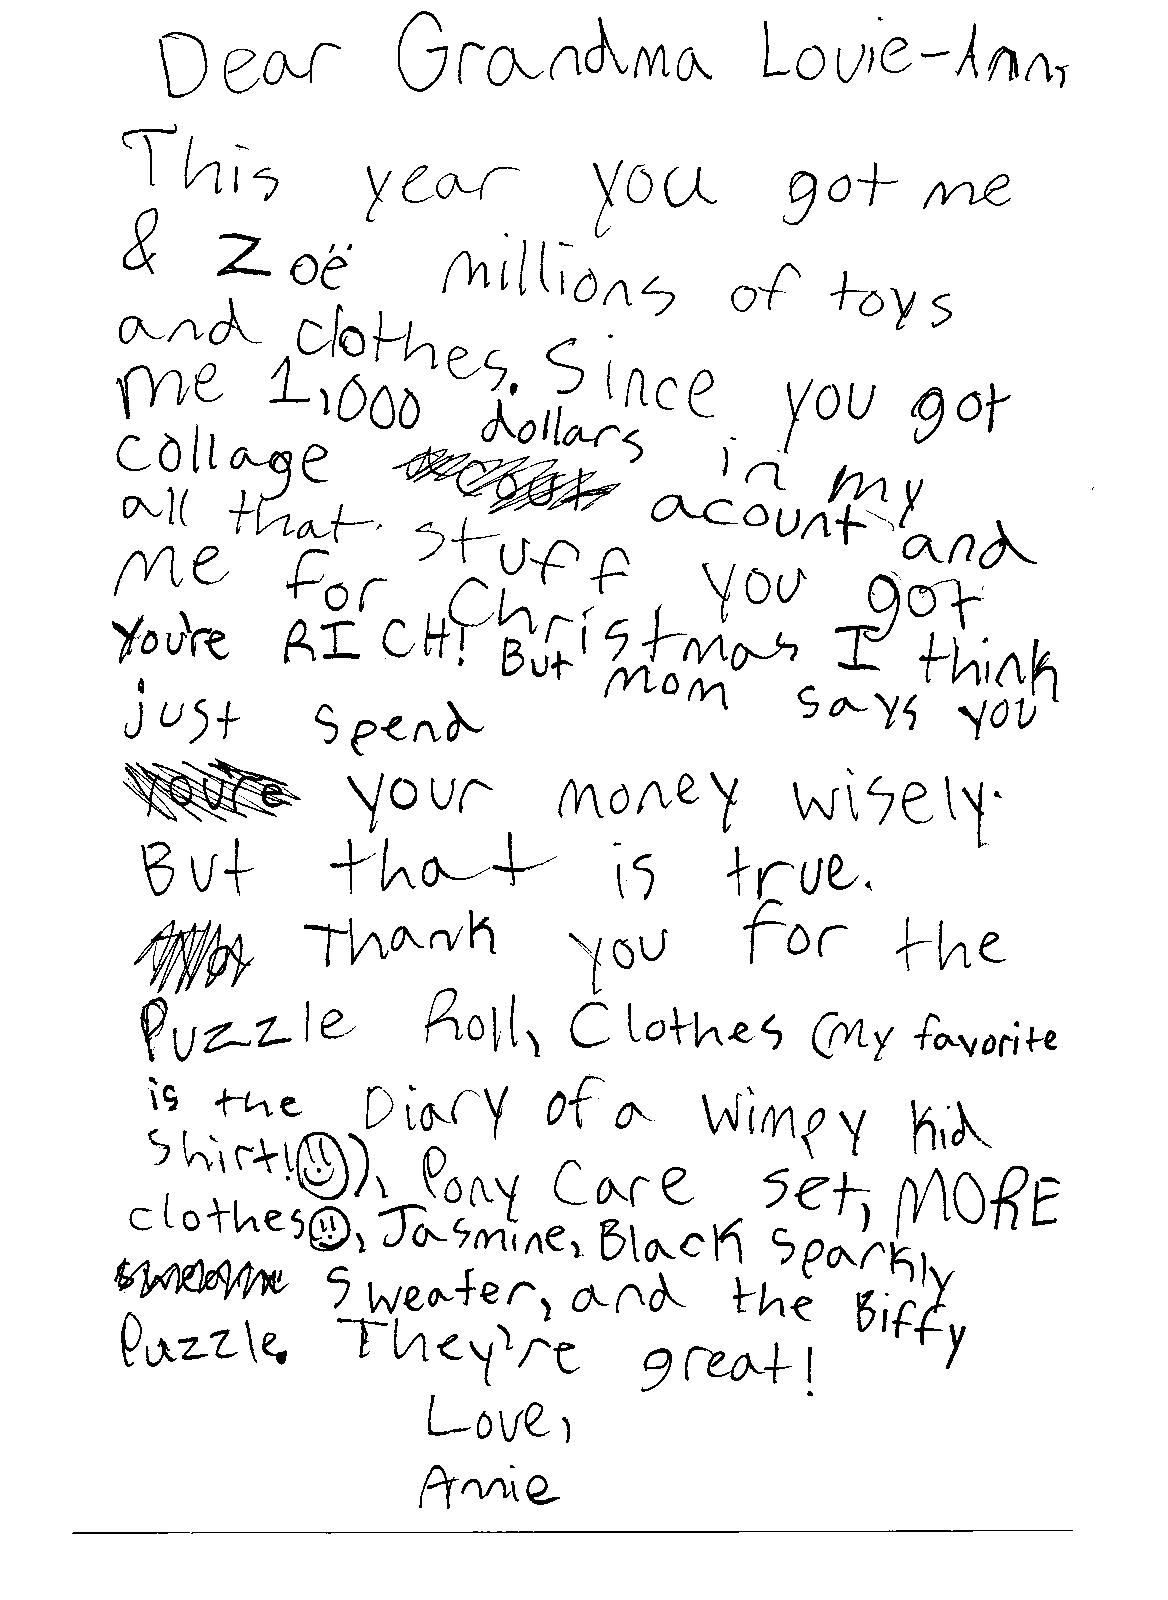 Dear Grandma Louie-Ann,
This year you got me
& Zoë millions of toys
and clothes. Since you got
me 1,000 dollars in my
collage acount and
all that stuff you got
me for Christmas I think
You're RICH! But mom says you
just spend
your money wisely.
But that is true.
Thank you for the
Puzzle Roll, Clothes (my favorite
is the Diary of a Wimpy kid
Shirt!), Pony Care set, MORE
clothes, Jasmine, Black Sparkly
Sweater, and the Biffy
Puzzle. They're great!
Love,
Annie